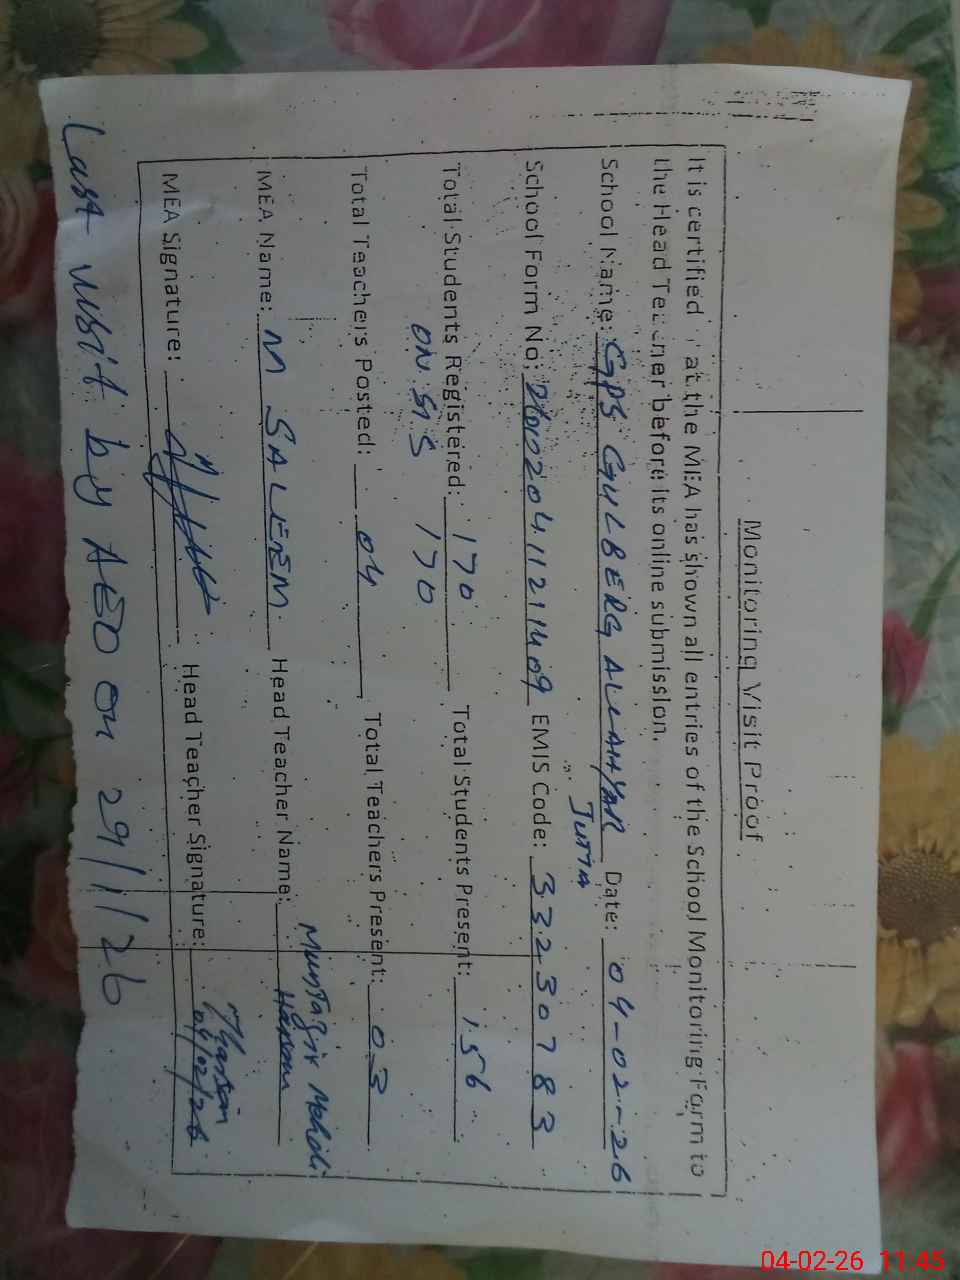 Monitoring Visit Proof
It is certified at the MEA has shown all entries of the School Monitoring Form to
the Head Teacher before its online submission.
School Name: GPS GULBERG ALLAHYAR Date: 04-02-26
JUTTA
School Form No: EMIS Code: 33230783
Total Students Registered: 170 Total Students Present: 156
ON SIS 170
Total Teachers Posted: 04 Total Teachers Present: 03
MEA Name: M SALEEM Head Teacher Name: Muntagir Mehdi
Hassan
MEA Signature: Head Teacher Signature:
04/02/26
Last visit by AEO on 29/1/26
04-02-26 11:45